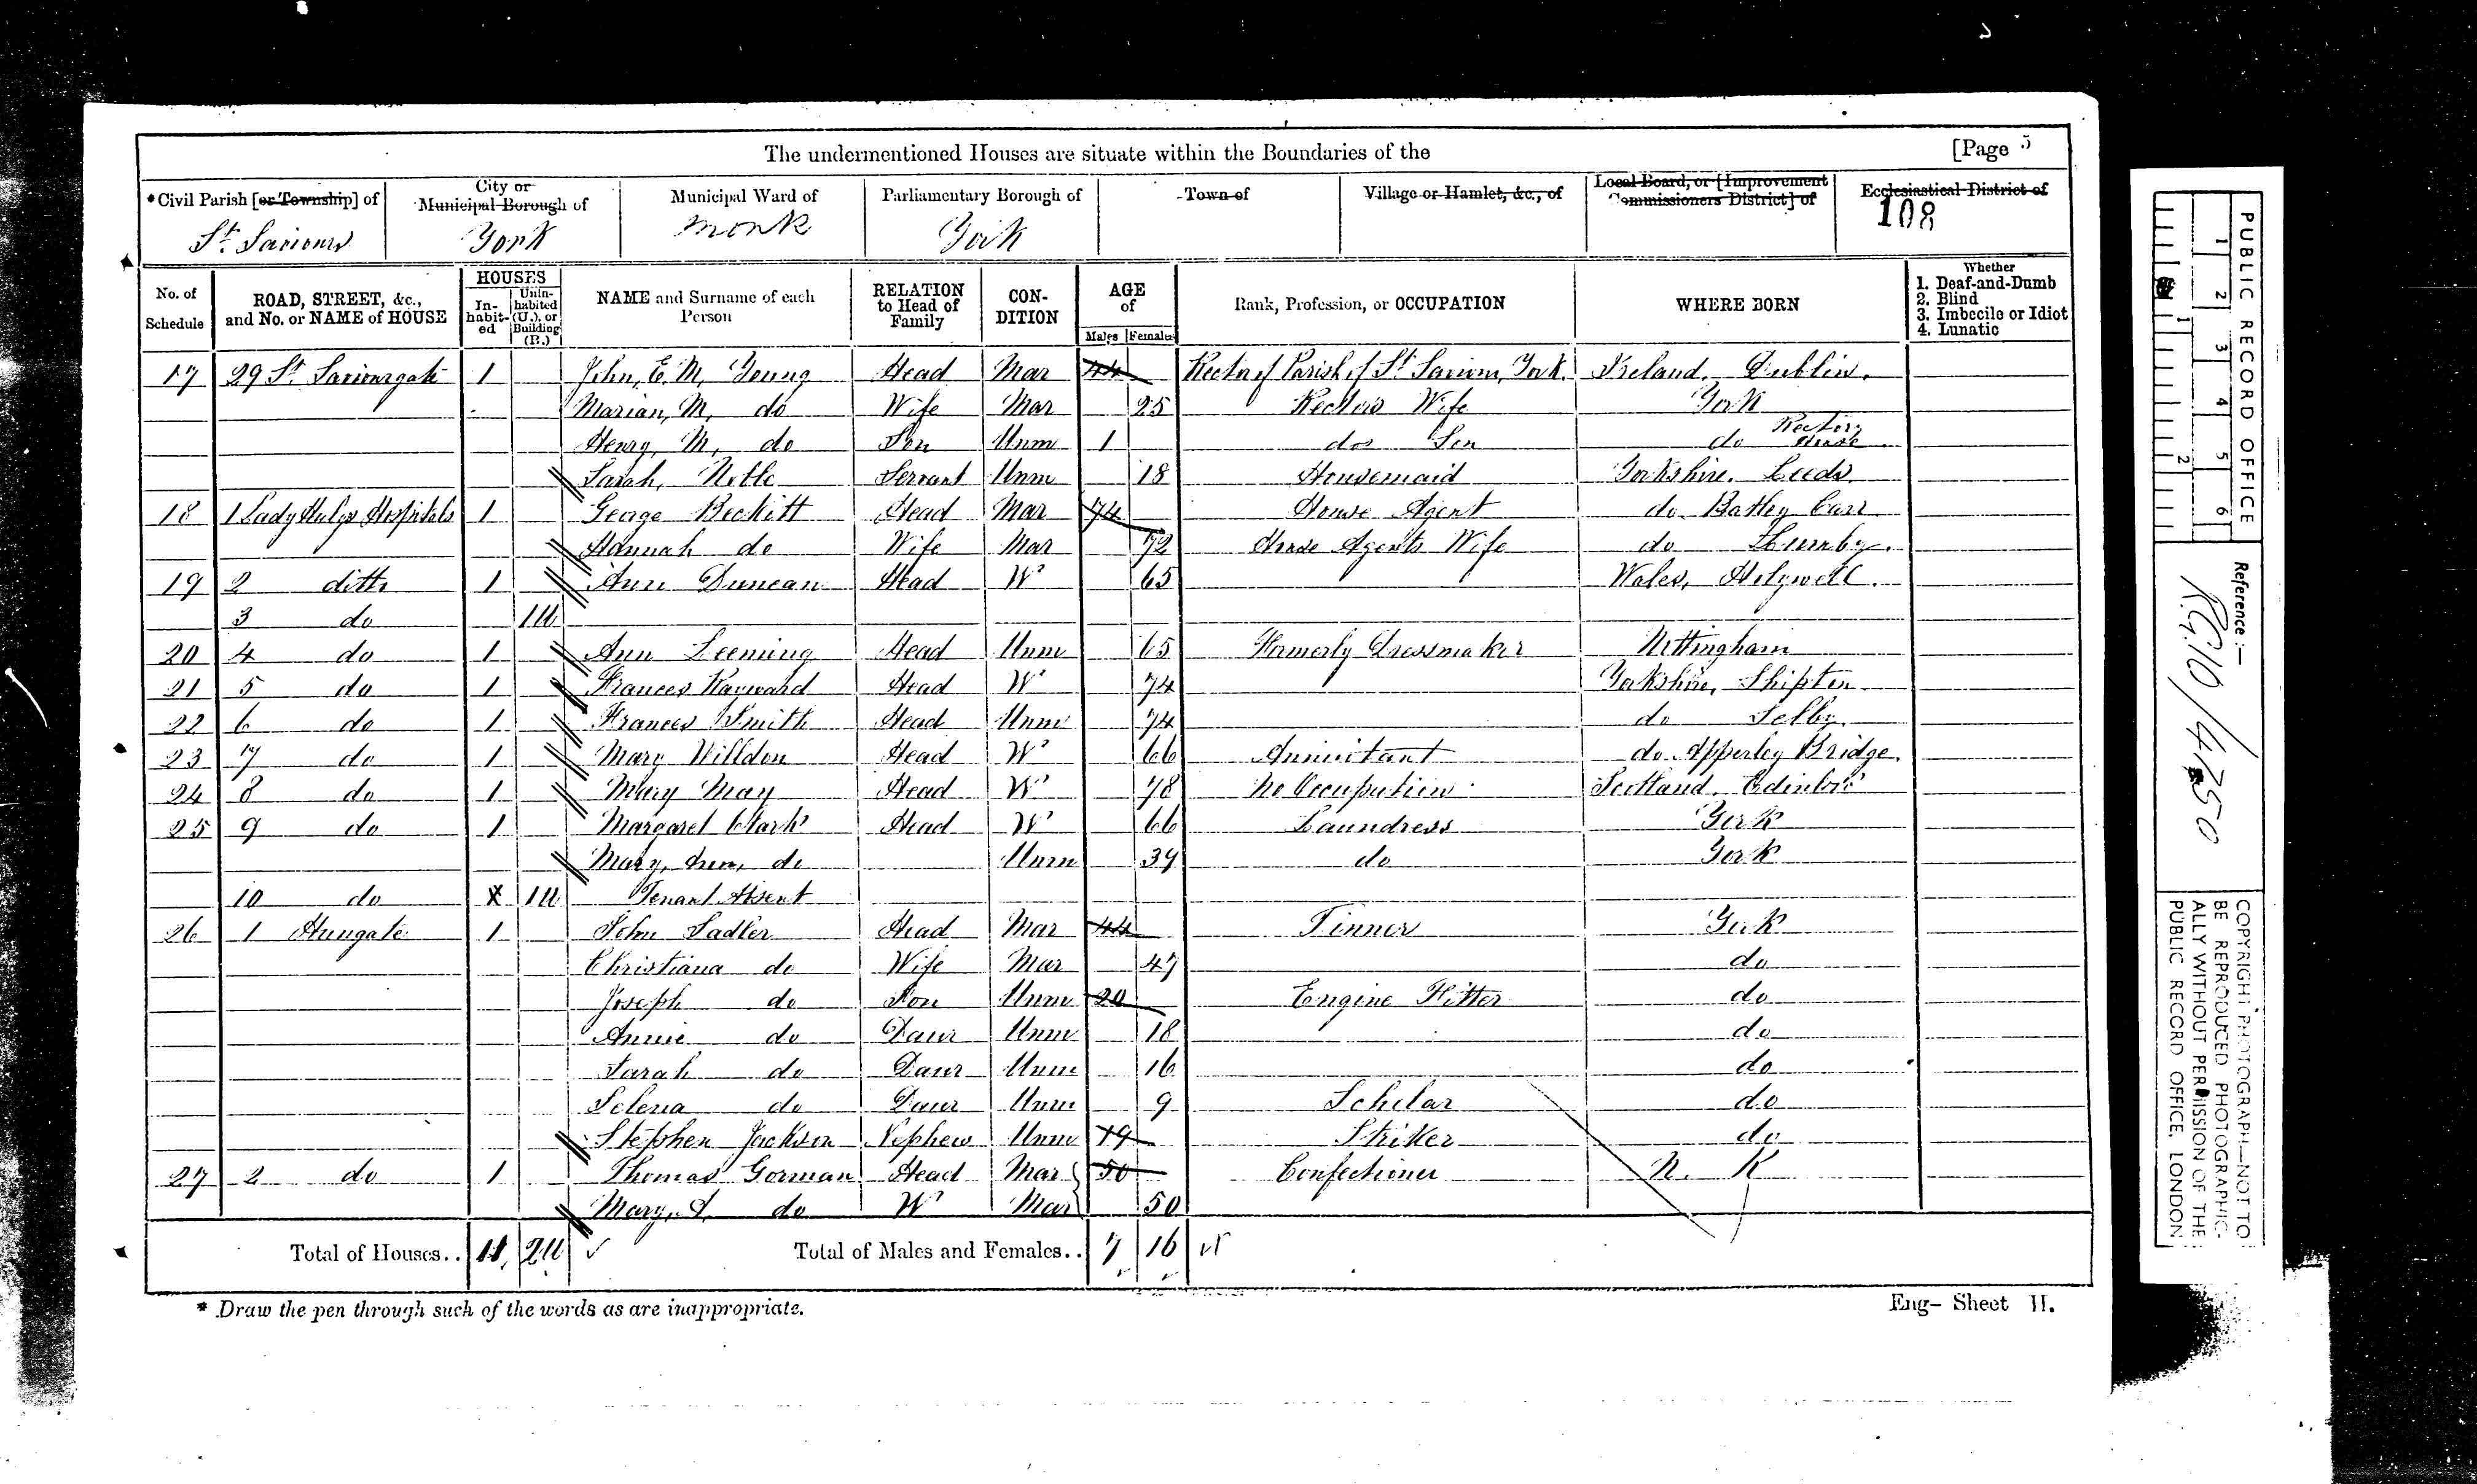 The undermentioned Houses are situate within the Boundaries of the [Page 5
*Civil Parish [or Township] of City or Municipal Borough of Municipal Ward of Parliamentary Borough of Town of Village or Hamlet, &c., of Local Board, or [Improvement Commissioners District] of Ecclesiastical District of
St Saviours York Monk York 108
No. of Schedule ROAD, STREET, &c., and No. or NAME of HOUSE HOUSES In-habit-ed Unin-habited (U.), or Building (B.) NAME and Surname of each Person RELATION to Head of Family CON-DITION AGE of Males Females Rank, Profession, or OCCUPATION WHERE BORN Whether 1. Deaf-and-Dumb 2. Blind 3. Imbecile or Idiot 4. Lunatic
17 29 St Saviourgate 1 John, E. M, Young Head Mar 44 Rector of Parish of St Saviour, York. Ireland, Dublin.
Marian, M, do Wife Mar 25 Rectors Wife York
Henry, M, do Son Unm 1 dos Son do Rectory
Sarah, Noble Servant Unm 18 Housemaid Yorkshire. Leeds.
18 1 Lady Huleys Hospitals 1 George Beckitt Head Mar 74 House Agent do Batley Carr
Hannah do Wife Mar 72 House Agents Wife do
19 2 ditto 1 Ann Duncan Head W 65 Wales, Holywell.
3 do 1U
20 4 do 1 Ann Leeming Head Unm 65 Formerly Dressmaker Nottingham
21 5 do 1 Frances Hayward Head W 74 Yorkshire, Shipton
22 6 do 1 Frances Smith Head Unm 74 do Selby
23 7 do 1 Mary Willdon Head W 66 Annuitant do Apperley Bridge.
24 8 do 1 Mary May Head W 78 No Occupation Scotland, Edinbro'
25 9 do 1 Margaret Clark Head W 66 Laundress York
Mary, Ann, do Unm 39 do York
10 do X 1U Tenant Absent
26 1 Hungate 1 John Sadler Head Mar 44 Tinner York
Christiana do Wife Mar 47 do
Joseph do Son Unm 20 Engine Fitter do
Annie do Daur Unm 18 do
Sarah do Daur Unm 16 do
Selena do Daur Unm 9 Scholar do
Stephen Jackson Nephew Unm 19 Striker do
27 2 do 1 Thomas Gorman Head Mar 50 Confectioner N. K
Mary, A, do W Mar 50
Total of Houses.. 11 2U Total of Males and Females.. 7 16
* Draw the pen through such of the words as are inappropriate. Eng- Sheet H.
PUBLIC RECORD OFFICE
1 2 3 4 5 6
1 2
Reference :—
R.G. 10/4750
COPYRIGHT PHOTOGRAPH—NOT TO BE REPRODUCED PHOTOGRAPHIC-ALLY WITHOUT PERMISSION OF THE PUBLIC RECORD OFFICE, LONDON